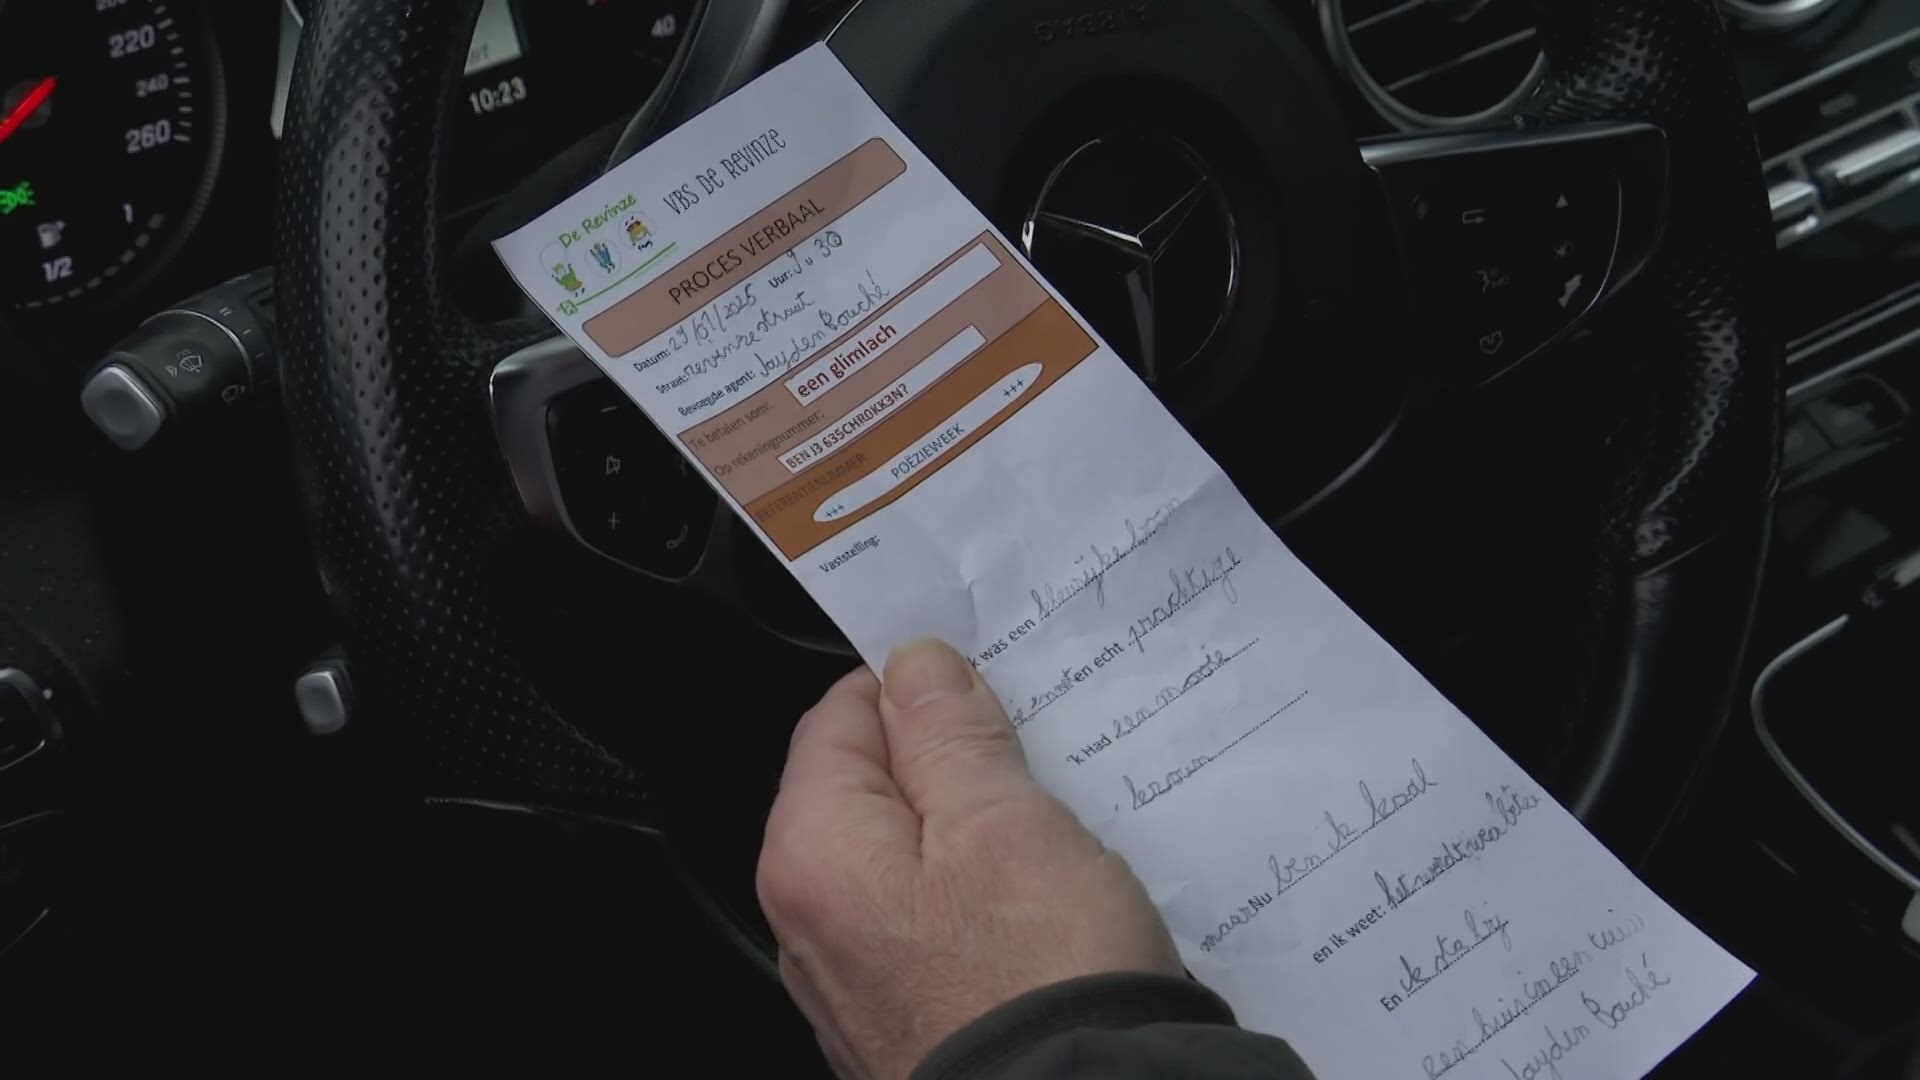 220
240
260
10:23
40
1
1/2
AIRBAG
De Revinze
VBS De Revinze
PROCES VERBAAL
Datum: 29/01/2026 Uur: 9u30
Straat: revinzestraat
Bevoegde agent: Jayden Bouché
Te betalen som: een glimlach
Op rekeningnummer:
BEN J3 635CHROKK3N?
REFERENTIENUMMER
+++ POËZIEWEEK +++
Vaststelling:
k was een kleurijke boom
en echt prachtige
'k Had een mooie
kroon
maar Nu ben ik kaal
en ik weet: het wordt wea beter
En ik sta bij
een huis in een tuin
Jayden Bouché